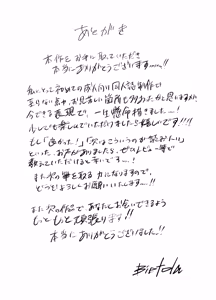 あとがき
本作をお手に取っていただき
本当にありがとうございます……!!
私にとって初めての成人向け同人誌制作で
至らない点や、お見苦しい箇所も多々あったかと思いますが、
今できる全力で、一生懸命描きました…!
少しでも楽しんでいただけましたら嬉しいです!!!
もし「良かった!」「次はこういうのが読みたい!」
といったお声がありましたら、ぜひよろしければ
教えていただけると幸いです…!
また次の筆を取る力になりますので、
どうぞよろしくお願いいたします…!!
また次の作品であなたとお会いできるよう
もっともっと頑張ります!!
本当にありがとうございました!!